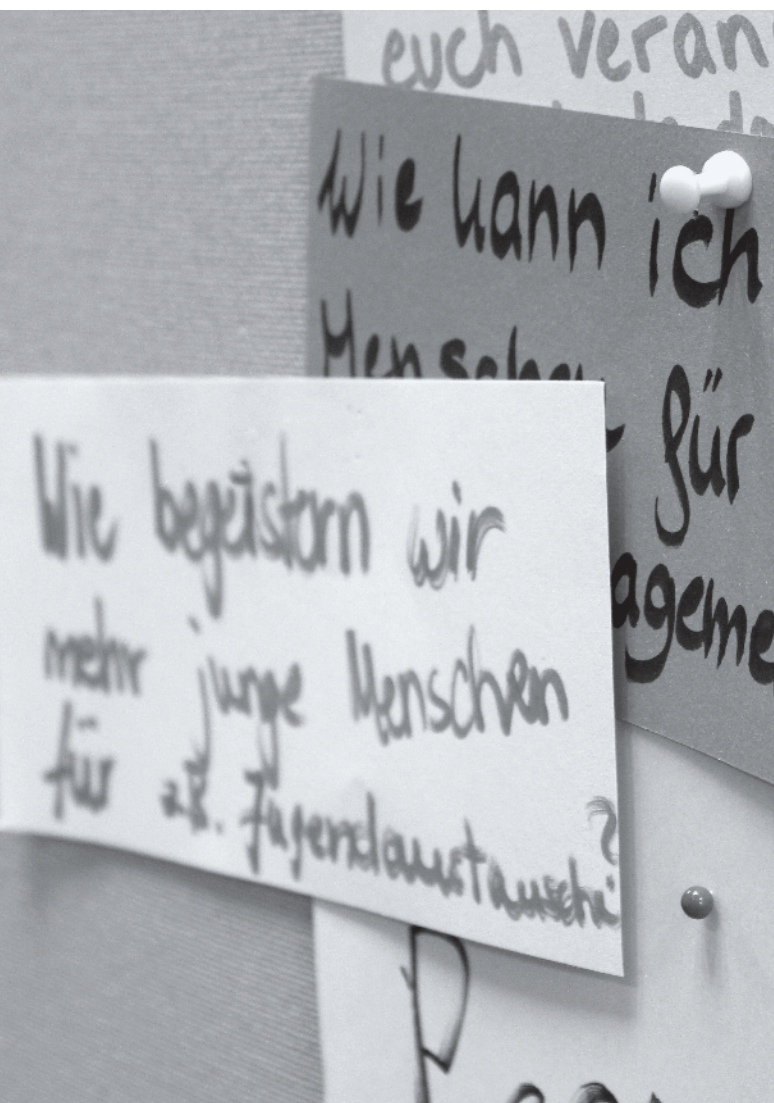 euch veran
Wie kann ich
Menschen
für
ageme
Wie begeistern wir
mehr junge Menschen
für z.B. Jugendaustausche?